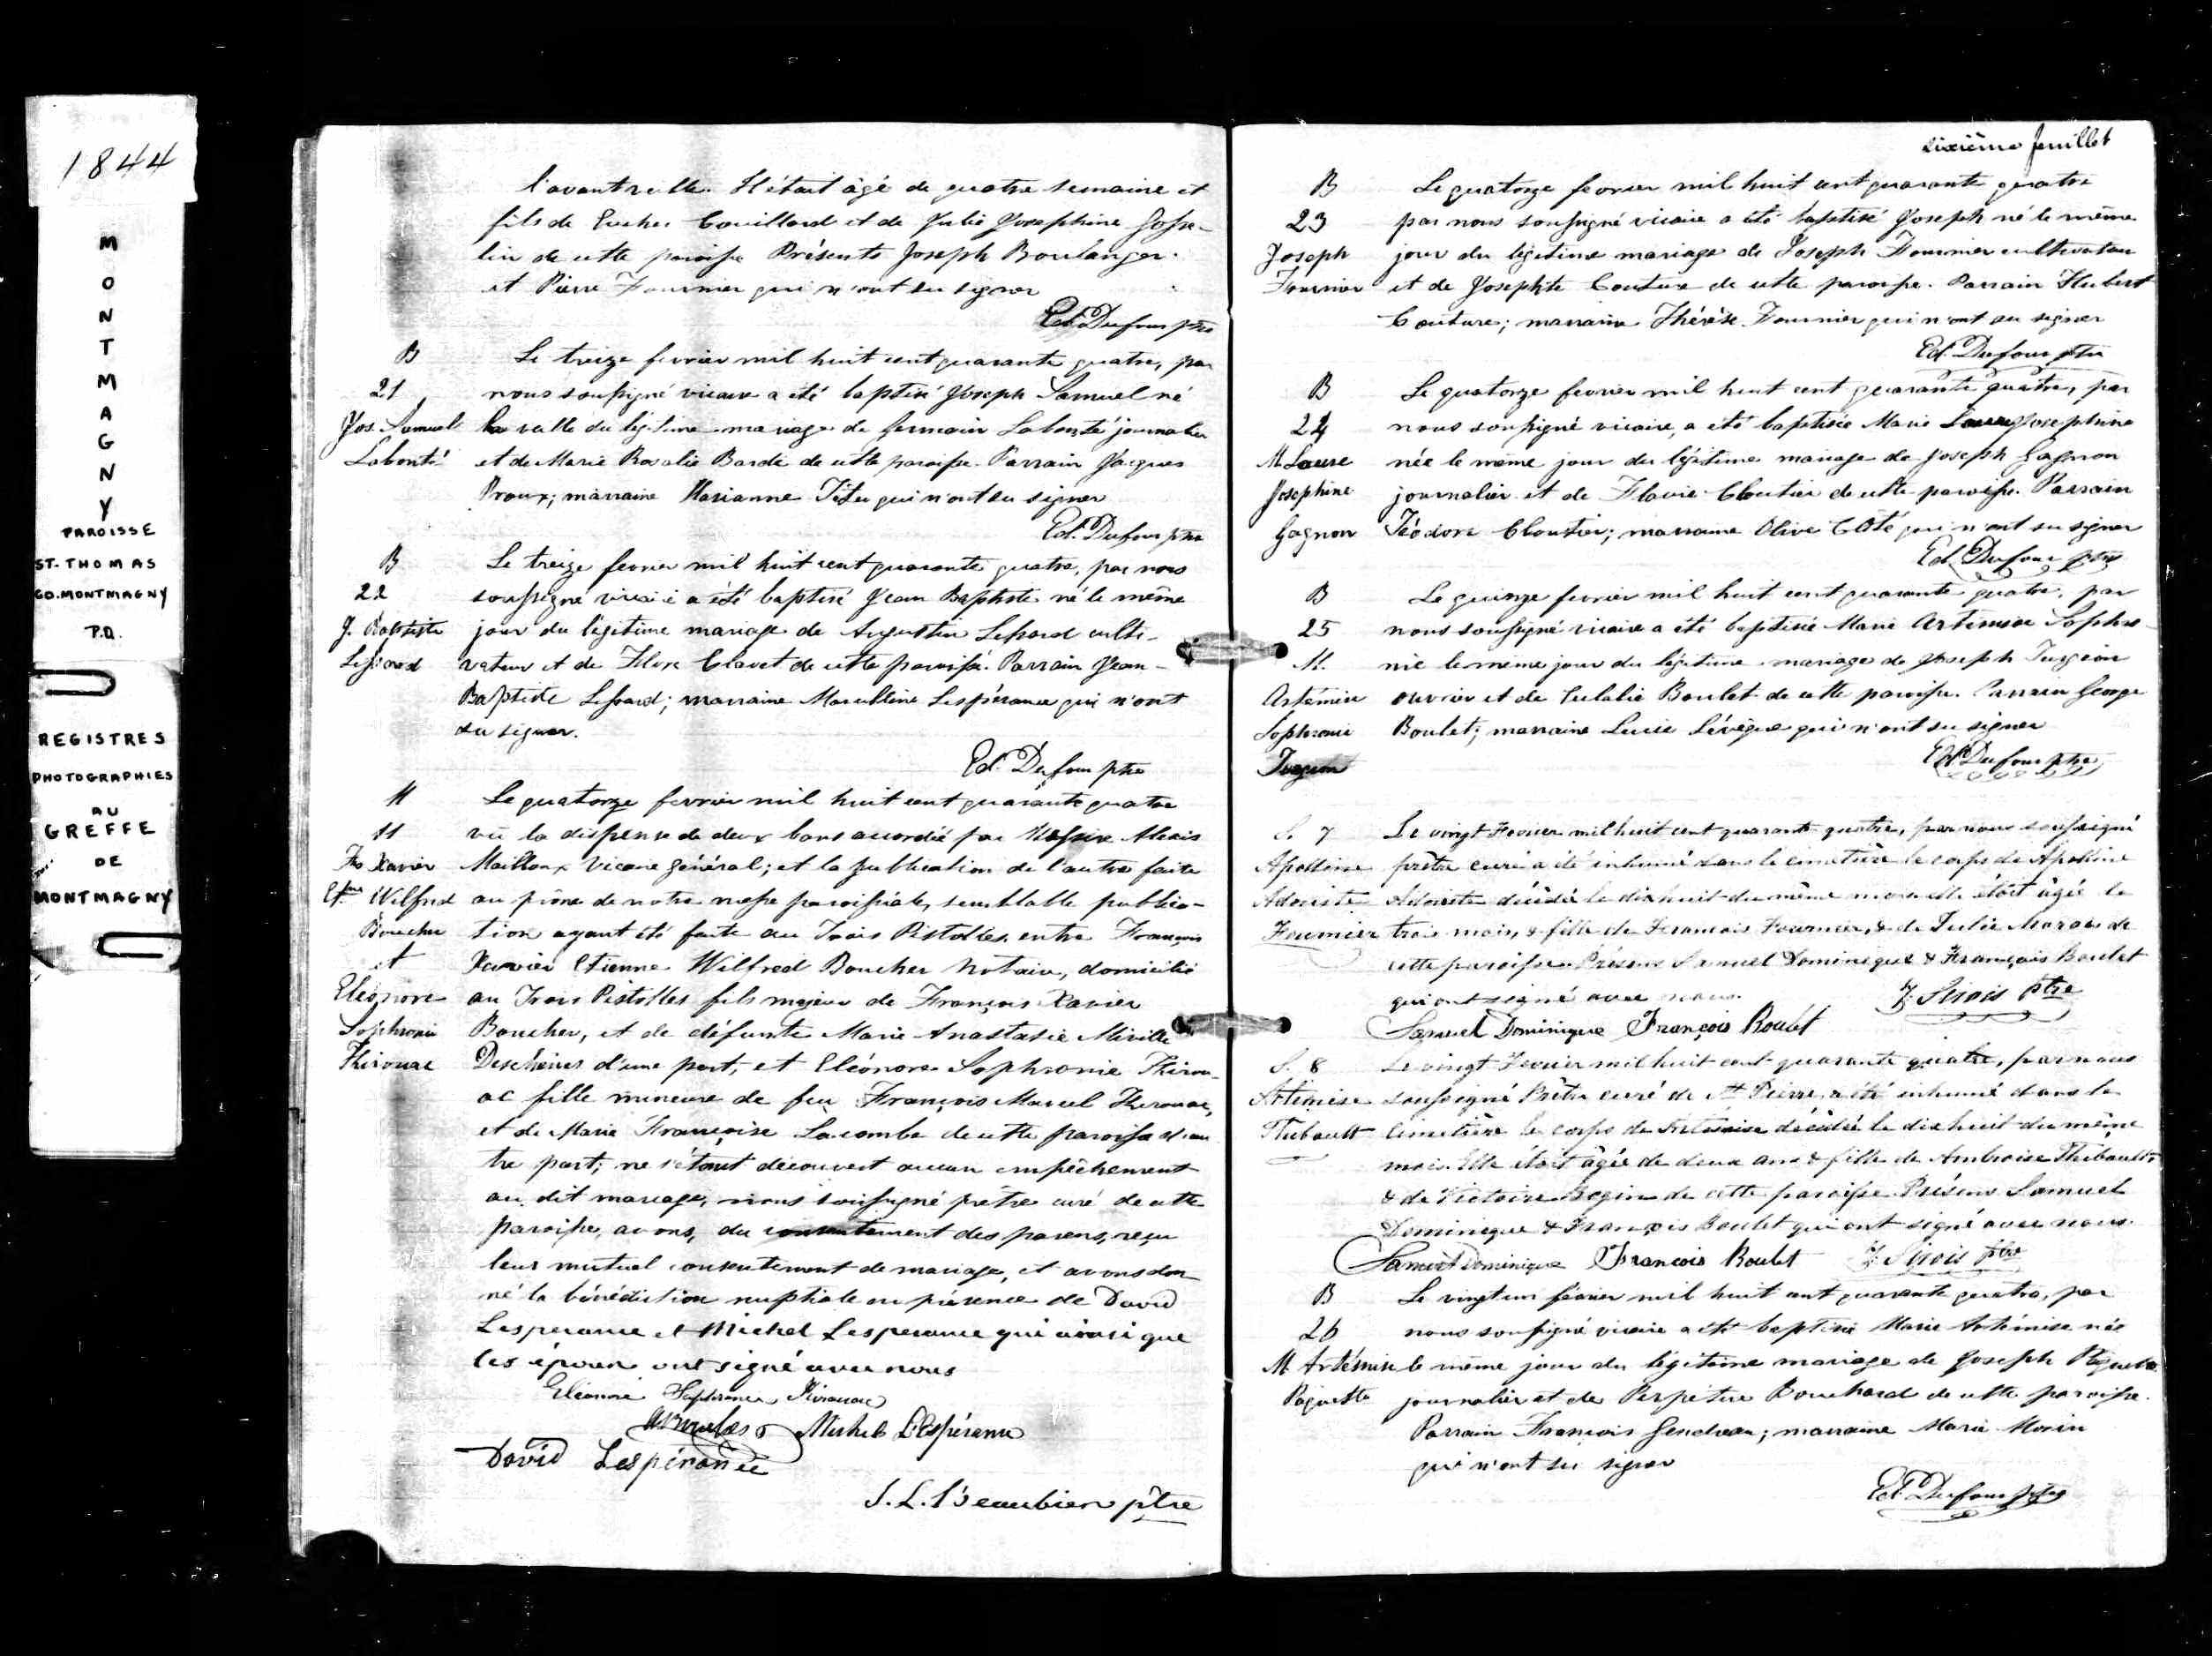 1844
MONTMAGNY
PAROISSE
ST. THOMAS
CO. MONTMAGNY
P.Q.
REGISTRES
PHOTOGRAPHIES
AU
GREFFE
DE
MONTMAGNY
l'avant veille. Il était âgé de quatre semaine et
fils de Couillard et de Julie Josephine Gosse-
lin de cette paroisse Présents Joseph Boulanger
et Pierre Fournier qui n'ont su signer
Ed. Dufour ptre
B
21
Jos. Samuel
Labonté
Le treize fevrier mil huit cent quarante quatre, par
nous soussigné vicaire a été baptisé Joseph Samuel né
la veille du légitime mariage de Germain Labonté journalier
et de Marie Rosalie Bardé de cette paroisse. Parrain Jacques
Proux; marraine Marianne Têtu qui n'ont su signer
Ed. Dufour ptre
B
22
J. Baptiste
Lessard
Le treize fevrier mil huit cent quarante quatre, par nous
soussigné vicaire a été baptisé Jean Baptiste né le même
jour du légitime mariage de Augustin Lessard culti-
vateur et de Flore Clavet de cette paroisse. Parrain Jean-
Baptiste Lessard; marraine Marcelline Lespérance qui n'ont
su signer.
Ed. Dufour ptre
M
11
Frs Xavier
Etne Wilfred
Boucher
et
Eléonore
Sophronie
Kirouac
Le quatorze fevrier mil huit cent quarante quatre
vû la dispense de deux bans accordée par Messire Alexis
Mailloux Vicaire Général; et la publication de l'autre faite
au prône de notre messe paroissiale, semblable publica-
tion ayant été faite au Trois Pistolles, entre François
Xavier Etienne Wilfred Boucher Notaire, domicilié
au Trois Pistolles fils majeur de François Xavier
Boucher, et de défunte Marie Anastasie Miville
Deschênes d'une part, et Eléonore Sophronie Kirou-
ac fille mineure de feu François Marcel Kirouac,
et de Marie Françoise Lacombe de cette paroisse d'au
tre part; ne s'étant découvert aucun empêchement
au dit mariage, nous soussigné prêtre curé de cette
paroisse, avons, du consentement des parens, reçu
leur mutuel consentement de mariage, et avons don
né la bénédiction nuptiale en présence de David
Lesperance et Michel Lesperance qui ainsi que
les époux ont signé avec nous
Eléonore Sophronie Kirouac
Michel LEspérance
David Lespérance
J. L. Beaubien ptre
sixième feuillet
B
23
Joseph
Fournier
Le quatorze fevrier mil huit cent quarante quatre
par nous soussigné vicaire a été baptisé Joseph né le même
jour du légitime mariage de Joseph Fournier cultivateur
et de Josephte Couture de cette paroisse. Parrain Hubert
Couture; marraine Thérèse Fournier qui n'ont su signer
Ed. Dufour ptre
B
24
M Laure
Josephine
Gagnon
Le quatorze fevrier mil huit cent quarante quatre, par
nous soussigné vicaire, a été baptisée Marie Laure Josephine
née le même jour du légitime mariage de Joseph Gagnon
journalier et de Flavie Cloutier de cette paroisse. Parrain
Téodore Cloutier; marraine Olive Côté qui n'ont su signer
Ed. Dufour ptre
B
25
M.
Artémise
Sophronie
Turgeon
Le quinze fevrier mil huit cent quarante quatre, par
nous soussigné vicaire a été baptisée Marie Artémise Sophro-
nie le même jour du légitime mariage de Joseph Turgeon
ouvrier et de Eulalie Boulet de cette paroisse. Parrain George
Boulet; marraine Lucie Lévêque qui n'ont su signer
Ed. Dufour ptre
S. 7
Apolline
Fournier
Le vingt Fevrier mil huit cent quarante quatre, par nous soussigné
prêtre curé a été inhumé dans le cimetière le corps de Apolline
décédée le dix huit du même mois elle étoit âgée de
trois mois, & fille de François Fournier, & de Julie de
cette paroisse. Présens Samuel Dominique & François Boulet
qui ont signé avec nous.
Z. Sirois Ptre
Samuel Dominique François Boulet
S. 8
Artémise
Thibault
Le vingt Fevrier mil huit cent quarante quatre, par nous
soussigné Prêtre curé de St Pierre, a été inhumé dans le
cimetière le corps de Artémise décédée le dix huit du même
mois. Elle étoit âgée de deux ans & fille de Ambroise Thibault
& de Victoire de cette paroisse. Présens Samuel
Dominique & François Boulet qui ont signé avec nous.
Samuel Dominique François Boulet Z. Sirois Ptre
B
26
M Artémise
Paquette
Le vingt un février mil huit cent quarante quatre, par
nous soussigné vicaire a été baptisée Marie Artémise née
le même jour du légitime mariage de Joseph Paquette
journalier et de Perpétue Bouchard de cette paroisse.
Parrain François Gendreau; marraine Marie Morin
qui n'ont su signer
Ed. Dufour ptre